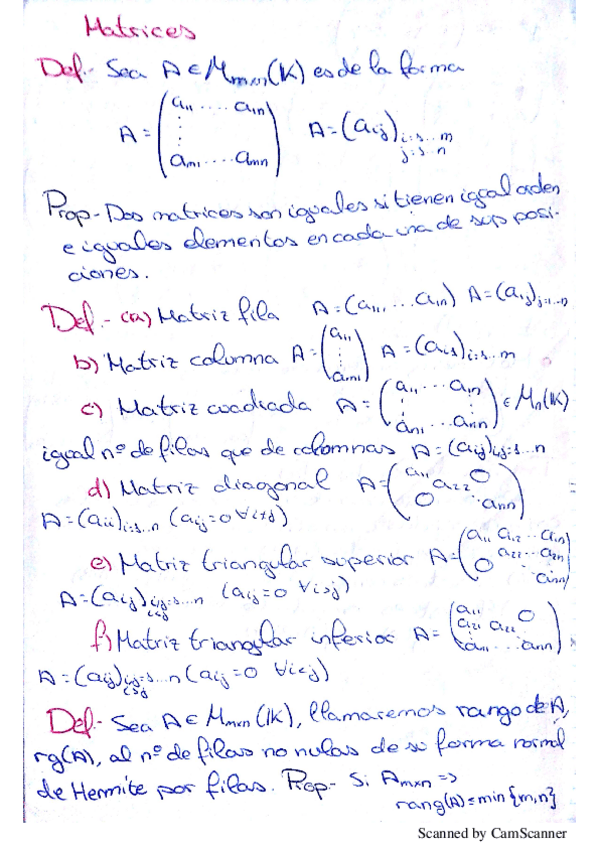 Matrices
Def.- Sea A ∈ Mmxn(K) es de la forma
A = (a11 .... a1n ⋮ am1 .... amn) A = (aij) i=1...m j=1...n
Prop.- Dos matrices son iguales si tienen igual orden
e iguales elementos en cada una de sus posi-
ciones.
Def.- (a) Matriz fila A = (a11, ... a1n) A = (a1j)j=1...n
b) Matriz columna A = (a11 ⋮ am1) A = (ai1)i=1...m
c) Matriz cuadrada A = (a11 ... a1n ⋮ ⋮ an1 ... ann) ∈ Mn(K)
igual nº de filas que de columnas A = (aij)i,j=1...n
d) Matriz diagonal A = (a11 0 a22 0 ... ann)
A = (aii)i=1...n (aij = 0 ∀i≠j)
e) Matriz triangular superior A = (a11 a12 ... a1n 0 a22 ... a2n ann)
A = (aij)i,j=1...n (aij = 0 ∀i>j)
f) Matriz triangular inferior A = (a11 0 a21 a22 an1 ... ann)
A = (aij)i,j=1...n (aij = 0 ∀i<j)
Def.- Sea A ∈ Mmxn(K), llamaremos rango de A,
rg(A), al nº de filas no nulas de su forma normal
de Hermite por filas. Prop.- Si Amxn =>
rang(A) ≤ min{m,n}
Scanned by CamScanner